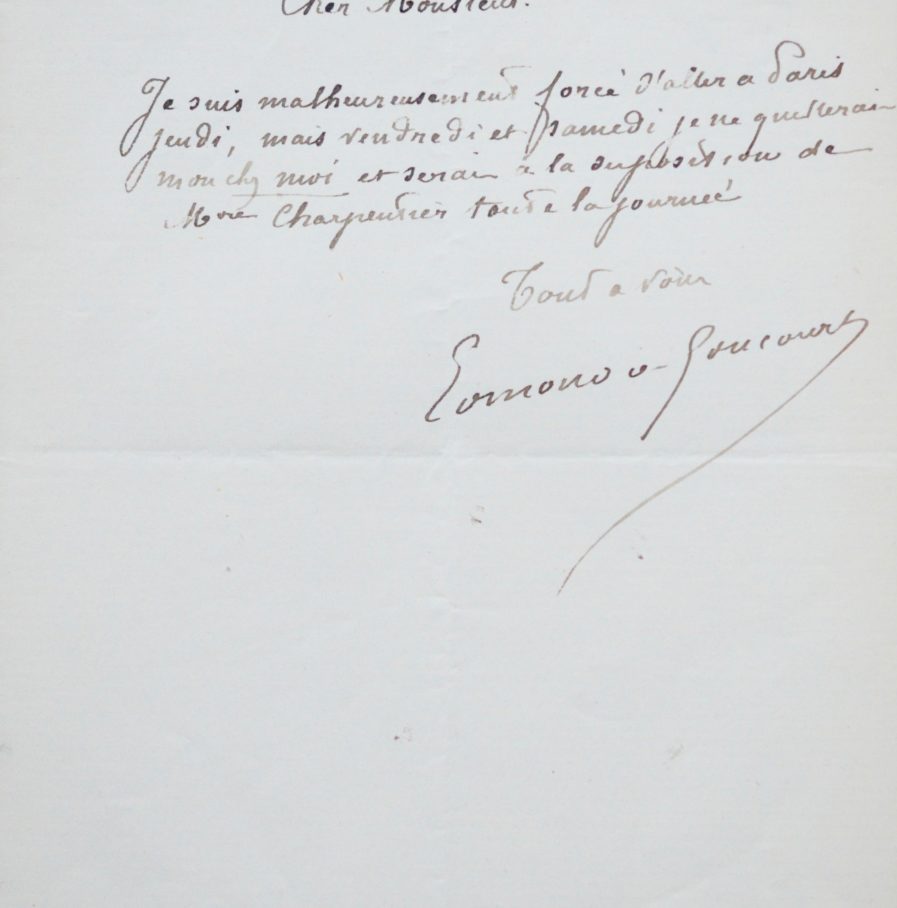 Cher Monsieur.
Je suis malheureusement forcé d'aller a Paris
jeudi, mais vendredi et samedi je ne quitterai
mon chez moi et serai à la disposition de
Mme Charpentier toute la journeé
Tout a vous
Edmond de Goncourt